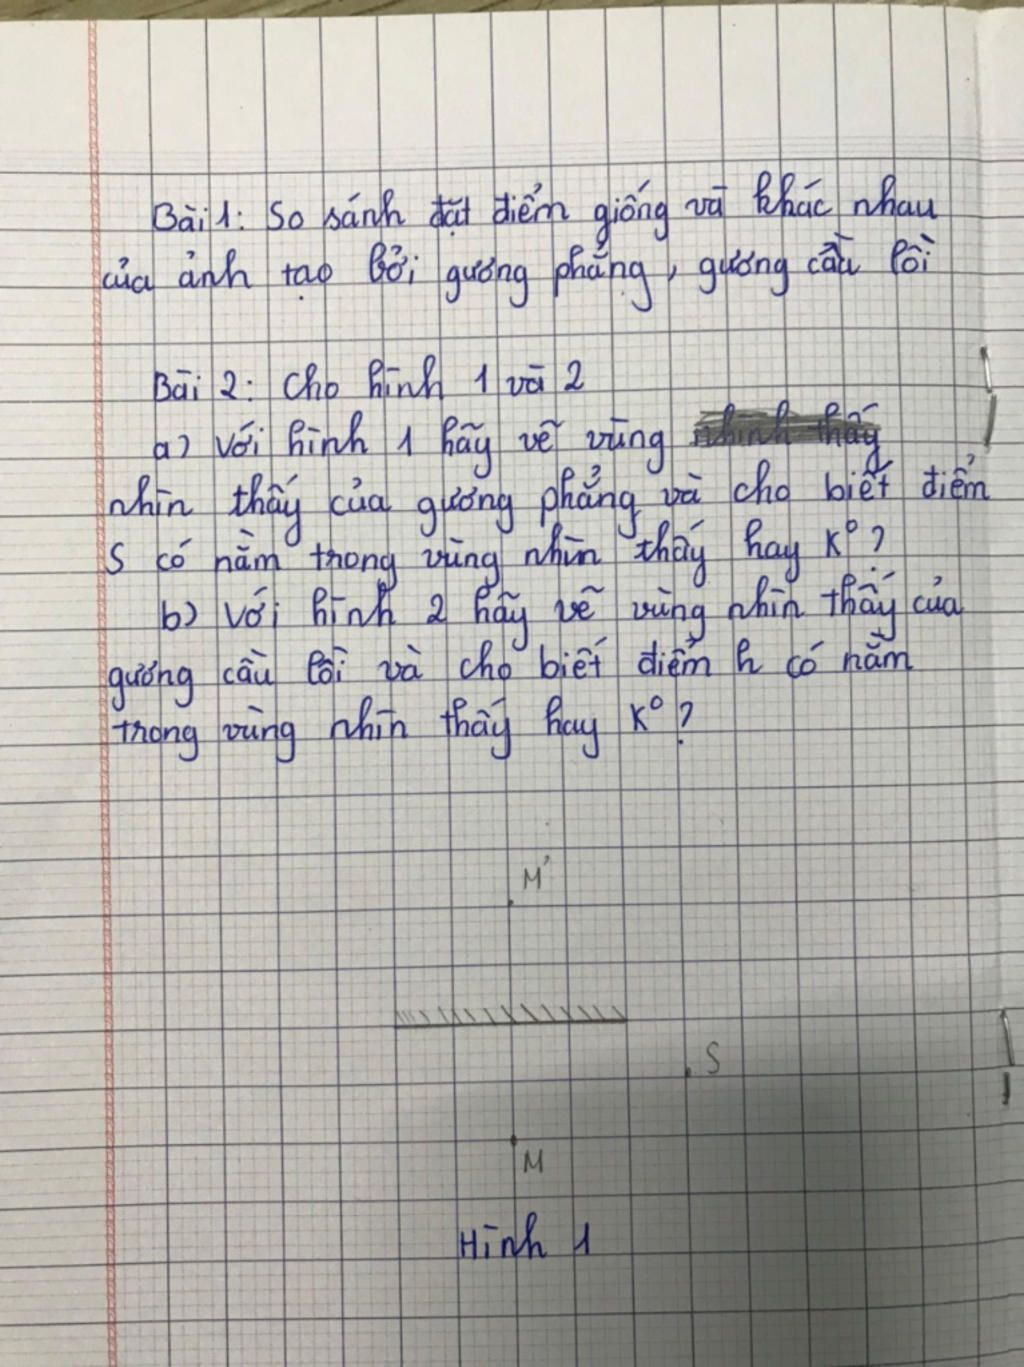 Bài 1: So sánh đặt điểm giống và khác nhau
của ảnh tạo bởi gương phẳng, gương cầu lồi
Bài 2: Cho hình 1 và 2
a) Với hình 1 hãy vẽ vùng nhìn thấy
nhìn thấy của gương phẳng và cho biết điểm
S có nằm trong vùng nhìn thấy hay K°?
b) Với hình 2 hãy vẽ vùng nhìn thấy của
gương cầu lồi và cho biết điểm h có nằm
trong vùng nhìn thấy hay K°?
M'
S
M
Hình 1